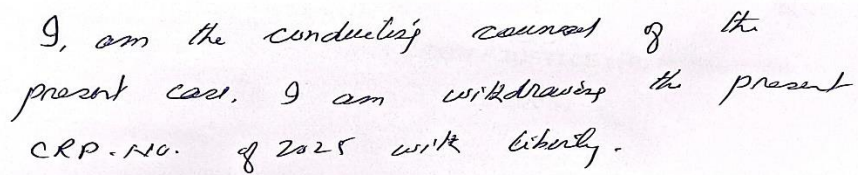 I, am the conducting counsel of the
present case. I am withdrawing the present
CRP. No. of 2025 with liberty.